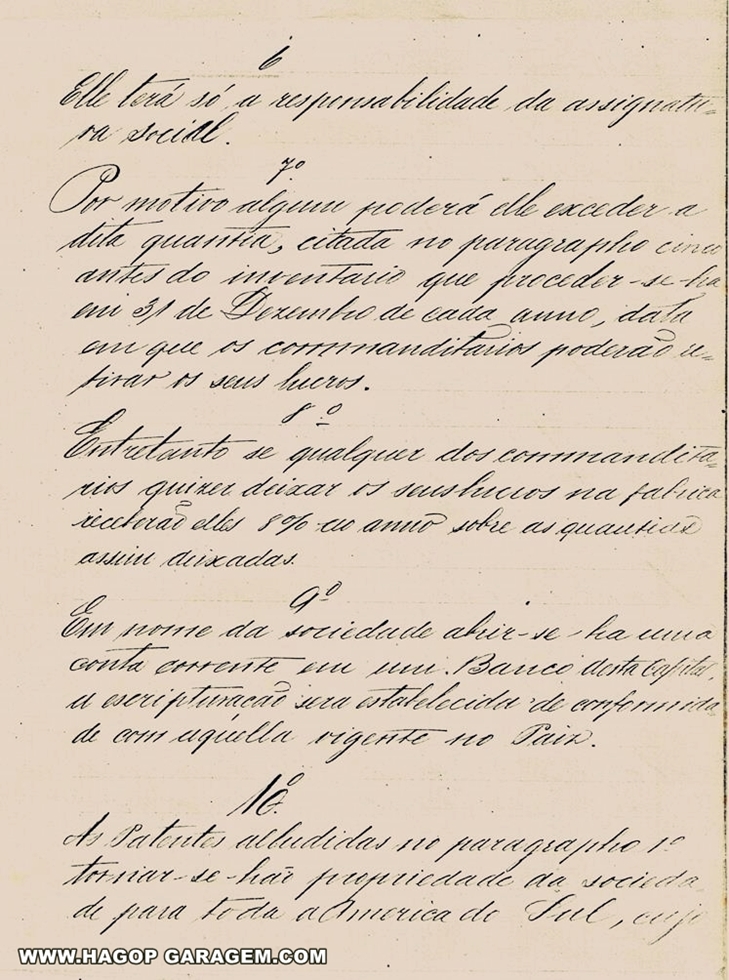 6
Elle terá só a responsabilidade da assignatu-
ra social.
7º
Por motivo algum poderá elle exceder a
dita quantia, citada no paragrapho cinco
antes do inventario que proceder-se-ha
em 31 de Dezembro de cada anno, data
em que os commanditarios poderão re-
tirar os seus lucros.
8º
Entretanto se qualquer dos commandita-
rios quizer deixar os seus lucros na fabrica
receberão elles 8% ao anno sobre as quantias
assim deixadas.
9º
Em nome da sociedade abrir-se-ha uma
conta corrente em um Banco desta Capital,
a escripturação sera estabelecida de conformida-
de com aquella vigente no Paiz.
10º
As Patentes alludidas no paragrapho 1º
tornar-se-hão propriedade da socieda-
de para toda a America do Sul, cujo
WWW.HAGOP GARAGEM.COM